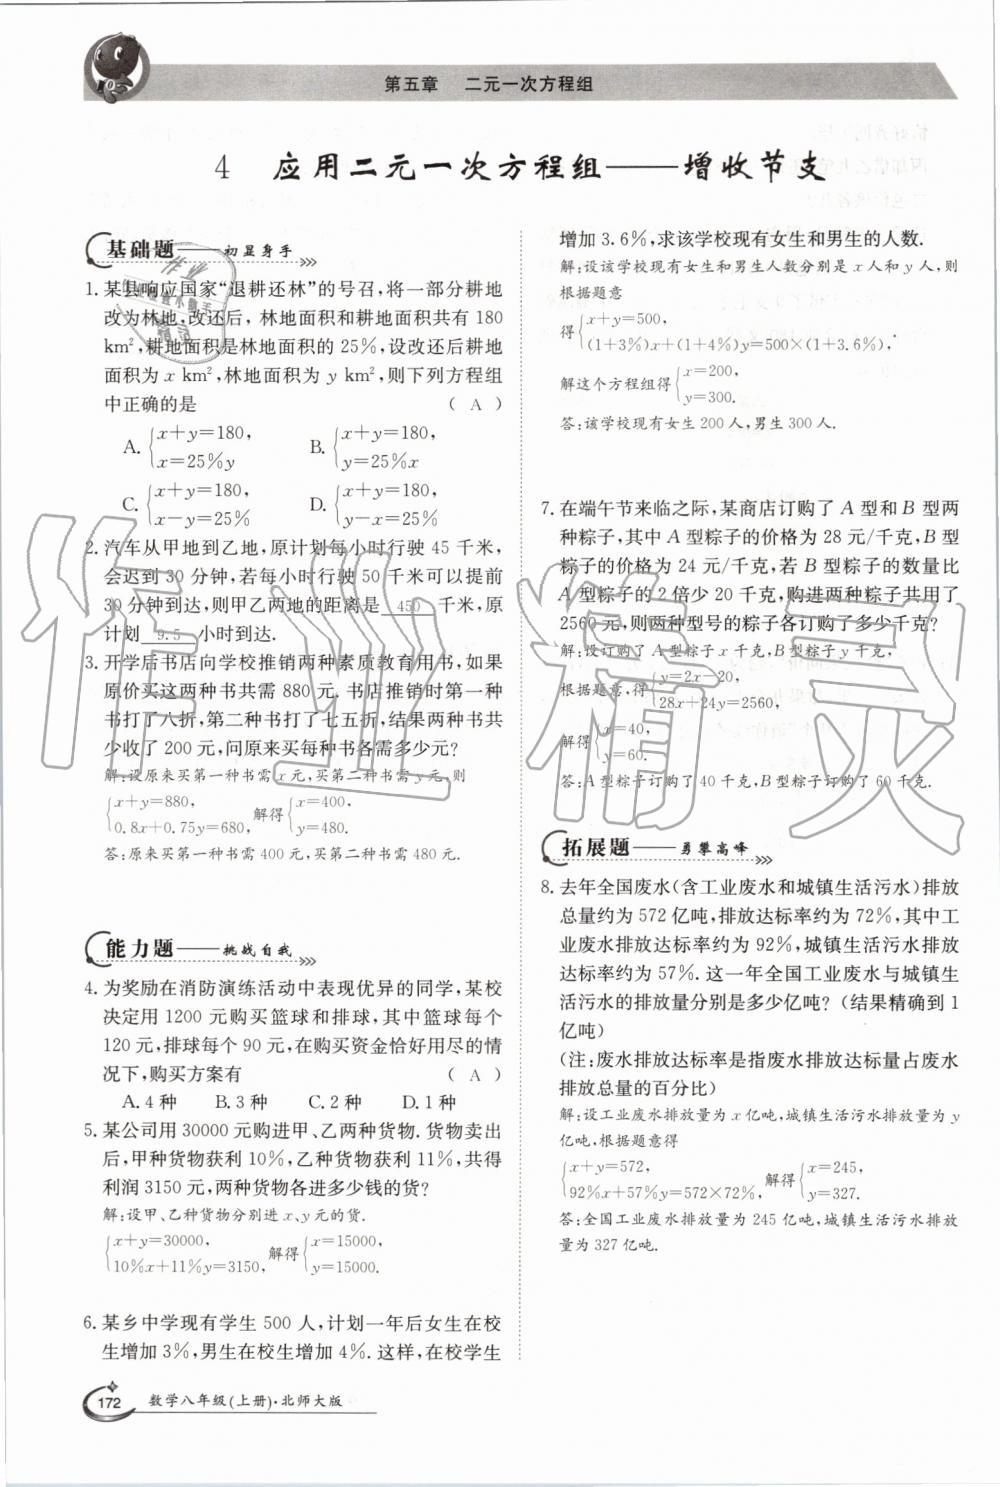 第五章 二元一次方程组
4 应用二元一次方程组——增收节支
基础题——初显身手
1. 某县响应国家“退耕还林”的号召,将一部分耕地
改为林地,改还后,林地面积和耕地面积共有 180
km²,耕地面积是林地面积的 25%,设改还后耕地
面积为 x km²,林地面积为 y km²,则下列方程组
中正确的是 ( A )
A. {x+y=180, x=25%y B. {x+y=180, y=25%x
C. {x+y=180, x-y=25% D. {x+y=180, y-x=25%
2. 汽车从甲地到乙地,原计划每小时行驶 45 千米,
会迟到 30 分钟,若每小时行驶 50 千米可以提前
30 分钟到达,则甲乙两地的距离是 450 千米,原
计划 9.5 小时到达.
3. 开学后书店向学校推销两种素质教育用书,如果
原价买这两种书共需 880 元. 书店推销时第一种
书打了八折,第二种书打了七五折,结果两种书共
少收了 200 元,问原来买每种书各需多少元?
解:设原来买第一种书需 x 元,买第二种书需 y 元,则
{x+y=880, 0.8x+0.75y=680, 解得 {x=400, y=480.
答:原来买第一种书需 400 元,买第二种书需 480 元.
能力题——挑战自我
4. 为奖励在消防演练活动中表现优异的同学,某校
决定用 1200 元购买篮球和排球,其中篮球每个
120 元,排球每个 90 元,在购买资金恰好用尽的情
况下,购买方案有 ( A )
A. 4 种 B. 3 种 C. 2 种 D. 1 种
5. 某公司用 30000 元购进甲、乙两种货物. 货物卖出
后,甲种货物获利 10%,乙种货物获利 11%,共得
利润 3150 元,两种货物各进多少钱的货?
解:设甲、乙种货物分别进 x、y 元的货.
{x+y=30000, 10%x+11%y=3150, 解得 {x=15000, y=15000.
6. 某乡中学现有学生 500 人,计划一年后女生在校
生增加 3%,男生在校生增加 4%. 这样,在校学生
增加 3.6%,求该学校现有女生和男生的人数.
解:设该学校现有女生和男生人数分别是 x 人和 y 人,则
根据题意
得 {x+y=500, (1+3%)x+(1+4%)y=500×(1+3.6%),.
解这个方程组得 {x=200, y=300.
答:该学校现有女生 200 人,男生 300 人.
7. 在端午节来临之际,某商店订购了 A 型和 B 型两
种粽子,其中 A 型粽子的价格为 28 元/千克,B 型
粽子的价格为 24 元/千克,若 B 型粽子的数量比
A 型粽子的 2 倍少 20 千克,购进两种粽子共用了
2560 元,则两种型号的粽子各订购了多少千克?
解:设订购了 A 型粽子 x 千克,B 型粽子 y 千克,
根据题意,得 {y=2x-20, 28x+24y=2560,
解得 {x=40, y=60.
答:A 型粽子订购了 40 千克,B 型粽子订购了 60 千克.
拓展题——勇攀高峰
8. 去年全国废水(含工业废水和城镇生活污水)排放
总量约为 572 亿吨,排放达标率约为 72%,其中工
业废水排放达标率约为 92%,城镇生活污水排放
达标率约为 57%. 这一年全国工业废水与城镇生
活污水的排放量分别是多少亿吨?(结果精确到 1
亿吨)
(注:废水排放达标率是指废水排放达标量占废水
排放总量的百分比)
解:设工业废水排放量为 x 亿吨,城镇生活污水排放量为 y
亿吨,根据题意得
{x+y=572, 92%x+57%y=572×72%, 解得 {x=245, y=327.
答:全国工业废水排放量为 245 亿吨,城镇生活污水排放
量为 327 亿吨.
172 数学八年级(上册)·北师大版
作业精灵